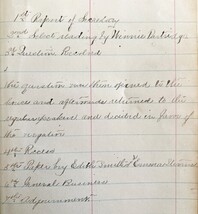 1st Report of Secretary
2nd Select reading by Minnie
3rd Question Resolved
the question was then opened to the
house and afterwards returned to the
regular speakers and decided in favor of
the negative
4th Recess
5th Paper by Edith Smith &
6th General Business
7th Adjournment